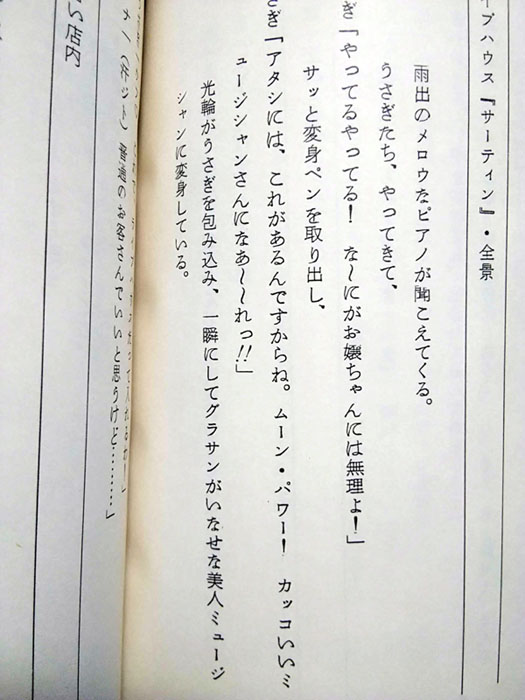 イブハウス『サーティン』・全景
雨出のメロウなピアノが聞こえてくる。
うさぎたち、やってきて、
ぎ「やってるやってる！　な～にがお嬢ちゃんには無理よ！」
サッと変身ペンを取り出し、
さぎ「アタシには、これがあるんですからね。ムーン・パワー！　カッコいいミ
ュージシャンさんになあ～～れっ!!」
光輪がうさぎを包み込み、一瞬にしてグラサンがいなせな美人ミュージ
シャンに変身している。
（ボソト）普通のお客さんでいいと思うけど………」
い店内